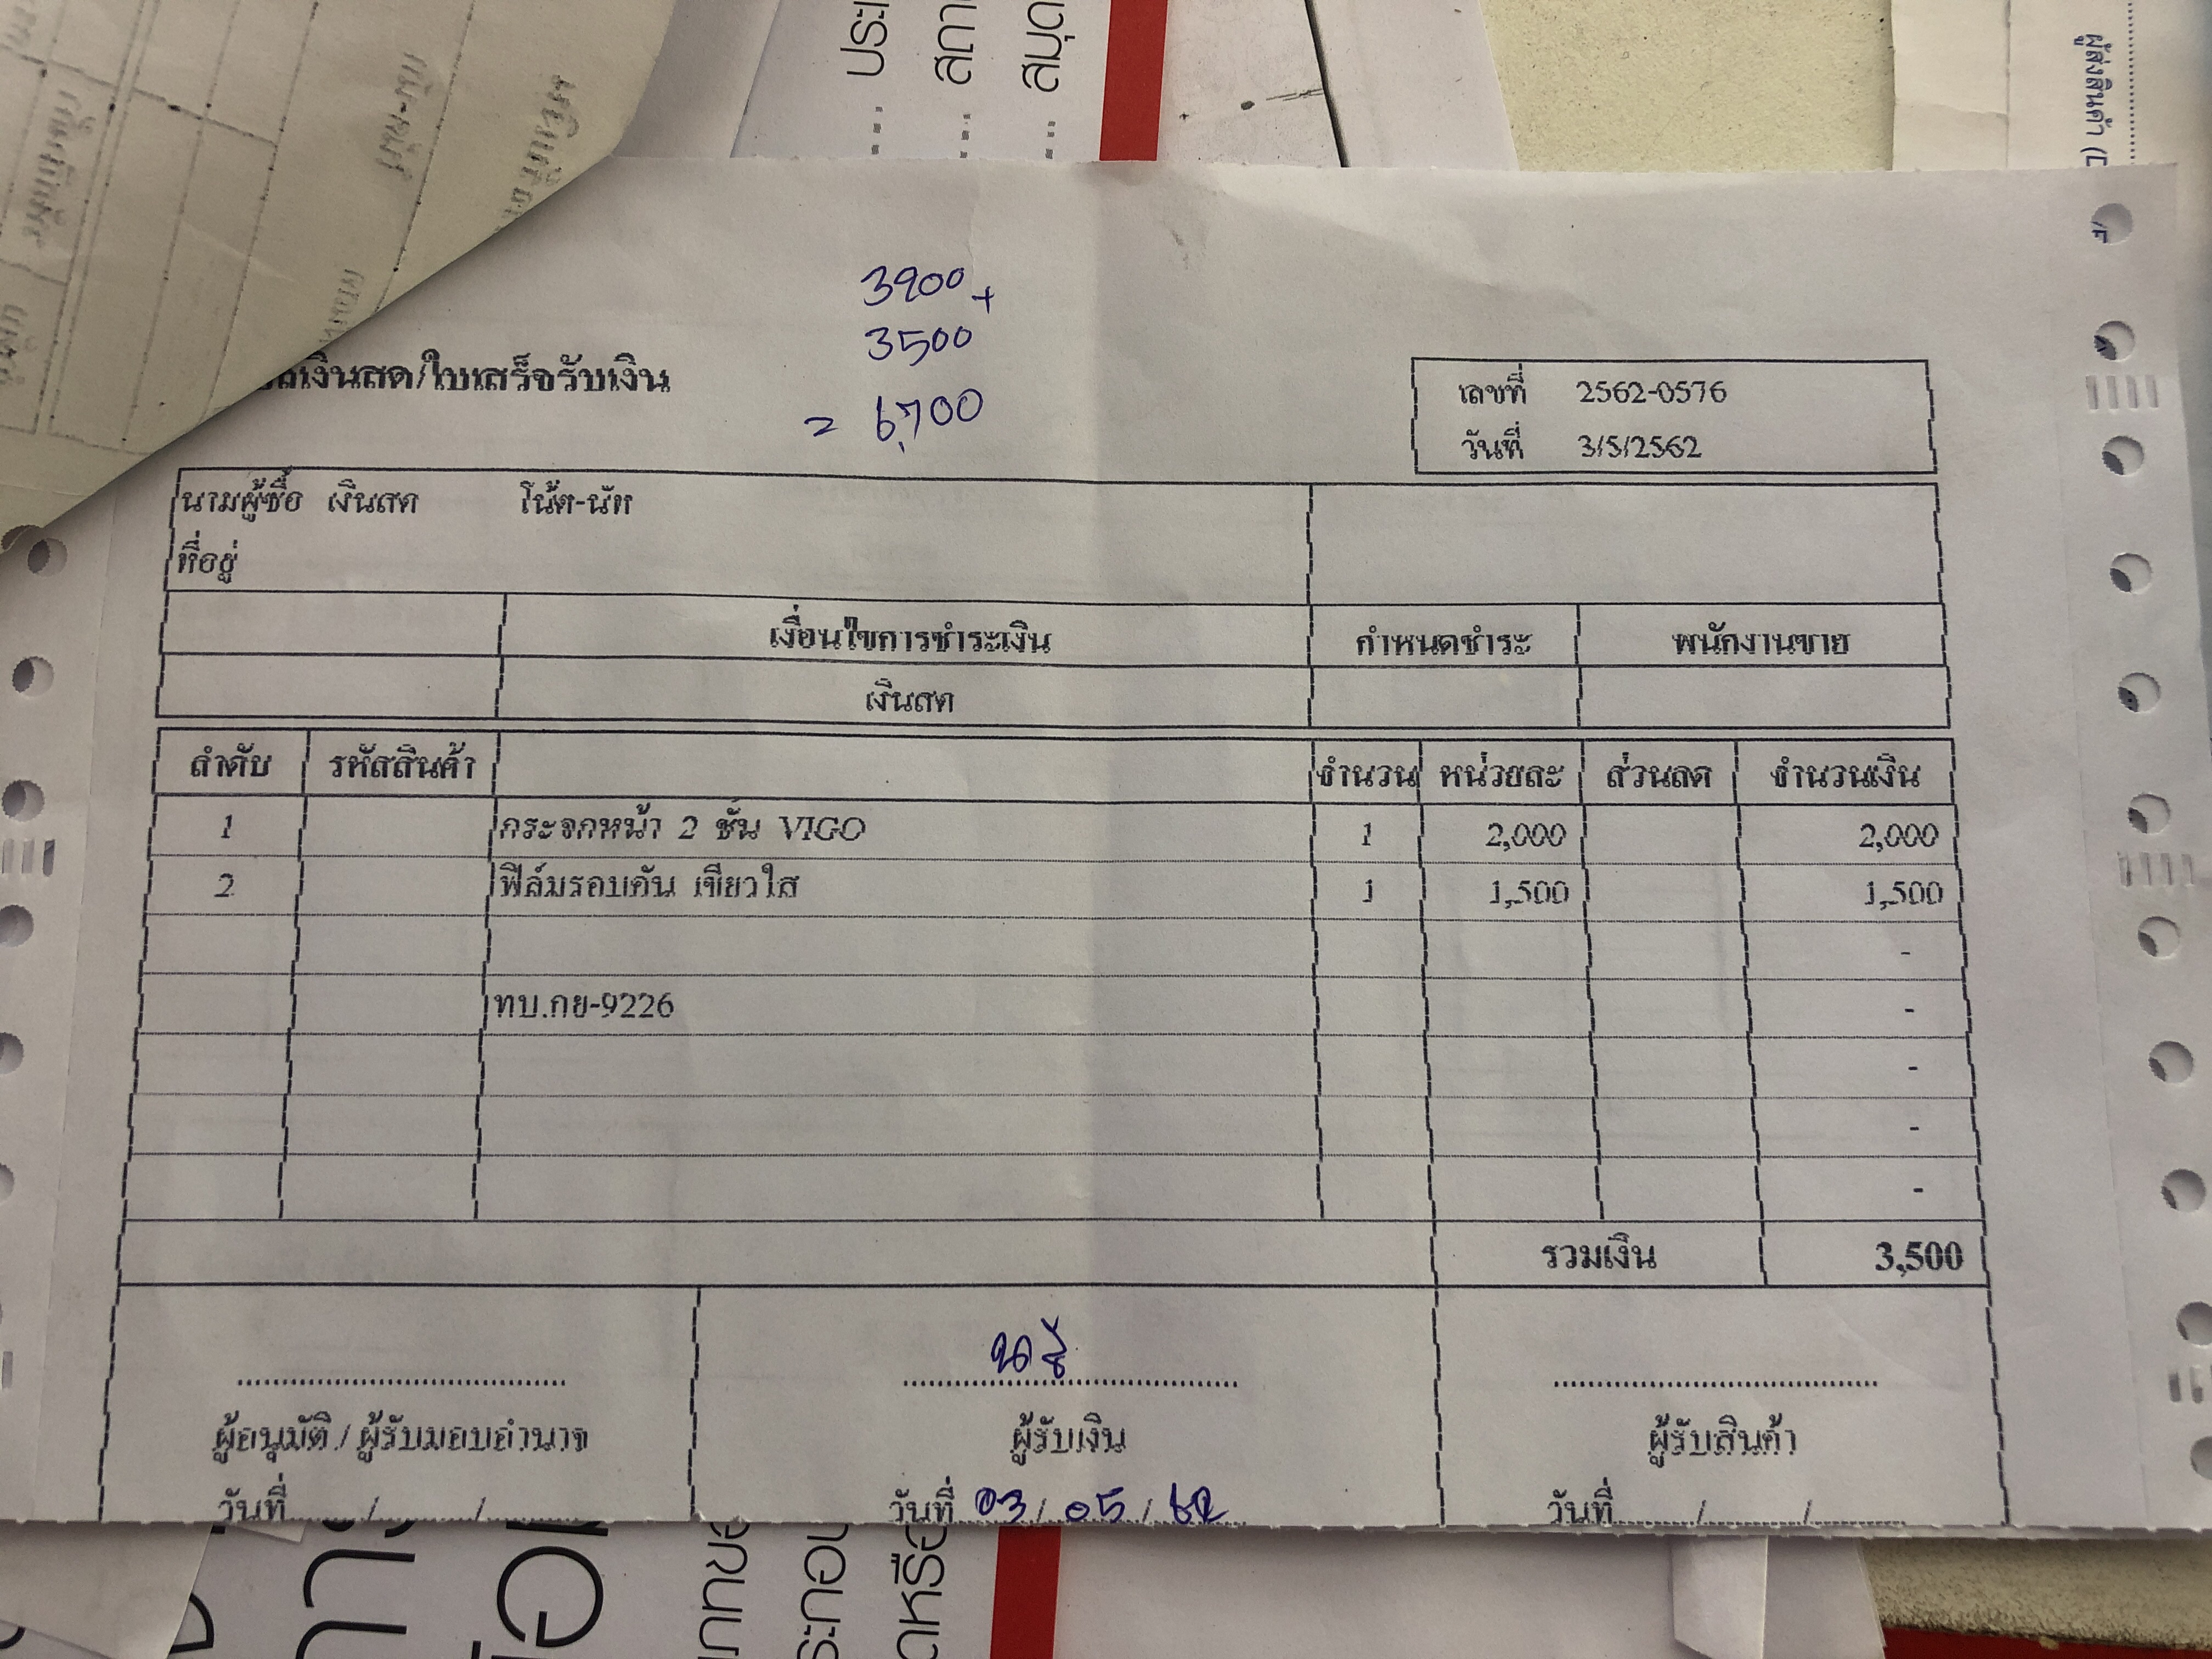 ประเ
สถา
สมุด
ผู้ส่งสินค้า (D
3200+
3500
= 6,700
เงินสด/ใบเสร็จรับเงิน
เลขที่ 2562-0576
วันที่ 3/5/2562
นามผู้ซื้อ เงินสด โน้ต-นัท
ที่อยู่
เงื่อนไขการชำระเงิน กำหนดชำระ พนักงานขาย
เงินสด
ลำดับ รหัสสินค้า จำนวน หน่วยละ ส่วนลด จำนวนเงิน
1 กระจกหน้า 2 ชั้น VIGO 1 2,000 2,000
2 ฟิล์มรอบคัน เขียวใส 1 1,500 1,500
-
ทบ.กย-9226 -
-
-
-
รวมเงิน 3,500
ผู้อนุมัติ / ผู้รับมอบอำนาจ ผู้รับเงิน ผู้รับสินค้า
วันที่......../............/............ วันที่ 03/05/62 วันที่............/............/............